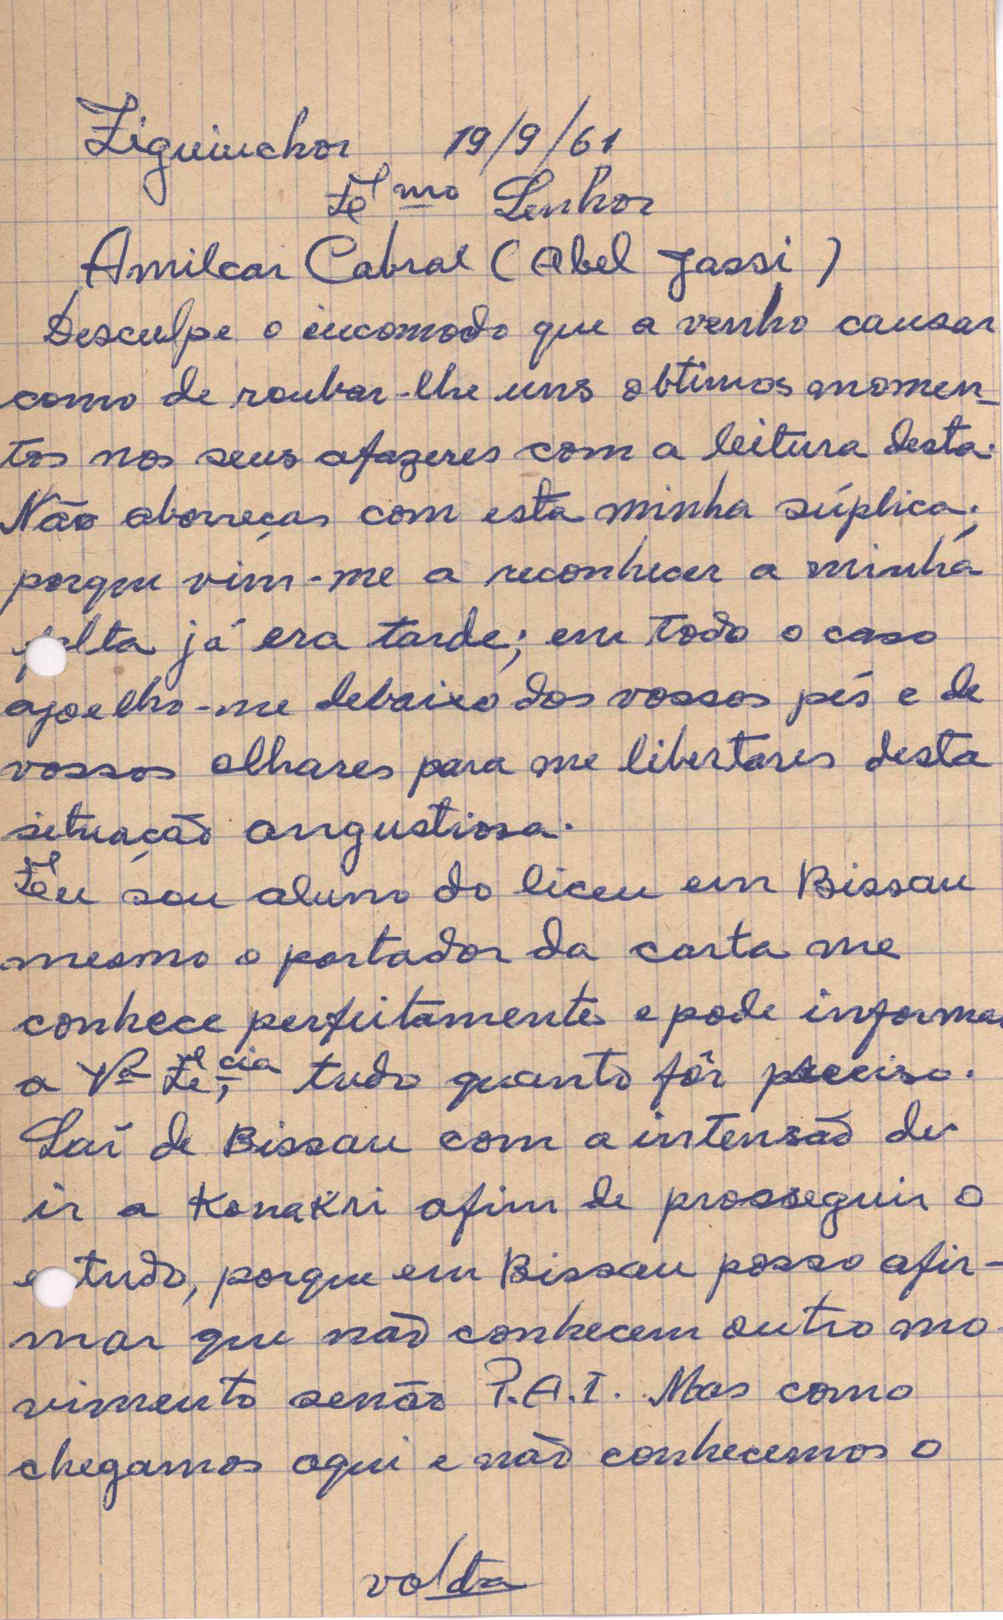 Ziguinchor 19/9/61
Exmo Senhor
Amilcar Cabral (Abel Jassi)
Desculpe o incomodo que a venho causar
como de roubar-lhe uns obtimos momen-
tos nos seus afazeres com a leitura desta.
Não aborreças com esta minha súplica.
porque vim-me a reconhecer a minha
falta já era tarde; em todo o caso
ajoelho-me debaixo dos vossos pés e de
vossos olhares para me libertares desta
situação angustiosa.
Eu sou aluno do liceu em Bissau
mesmo o portador da carta me
conhece perfeitamente e pode informar
a Vª Excia, tudo quanto fôr preciso.
Saí de Bissau com a intensão de
ir a Konakri afim de prosseguir o
estudo, porque em Bissau posso afir-
mar que não conhecem outro mo-
vimento senão P.A.I. Mas como
chegamos aqui e não conhecemos o
volta